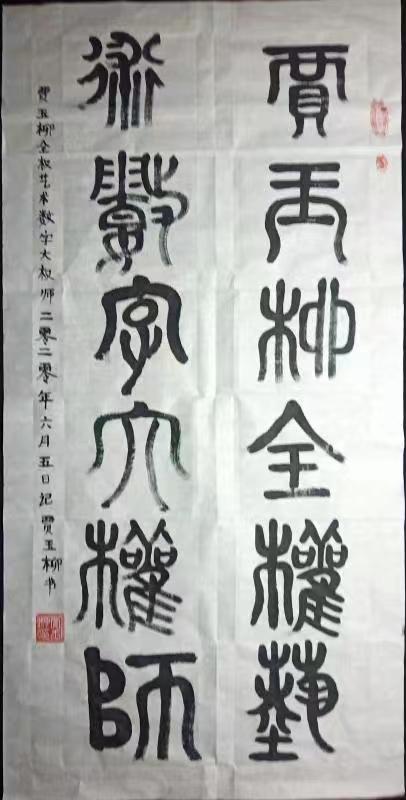 賈玉柳全權藝
術數字大權師
贾玉柳全权艺术数字大权师二零二零年六月五日记贾玉柳书